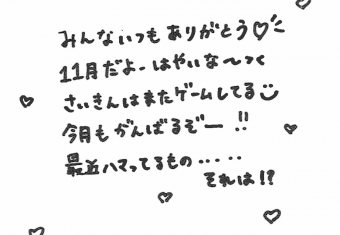 みんないつもありがとう♡
11月だよーはやいな〜っく
さいきんはまたゲームしてる
今月もがんばるぞー!!
最近ハマってるもの‥‥‥
それは!?